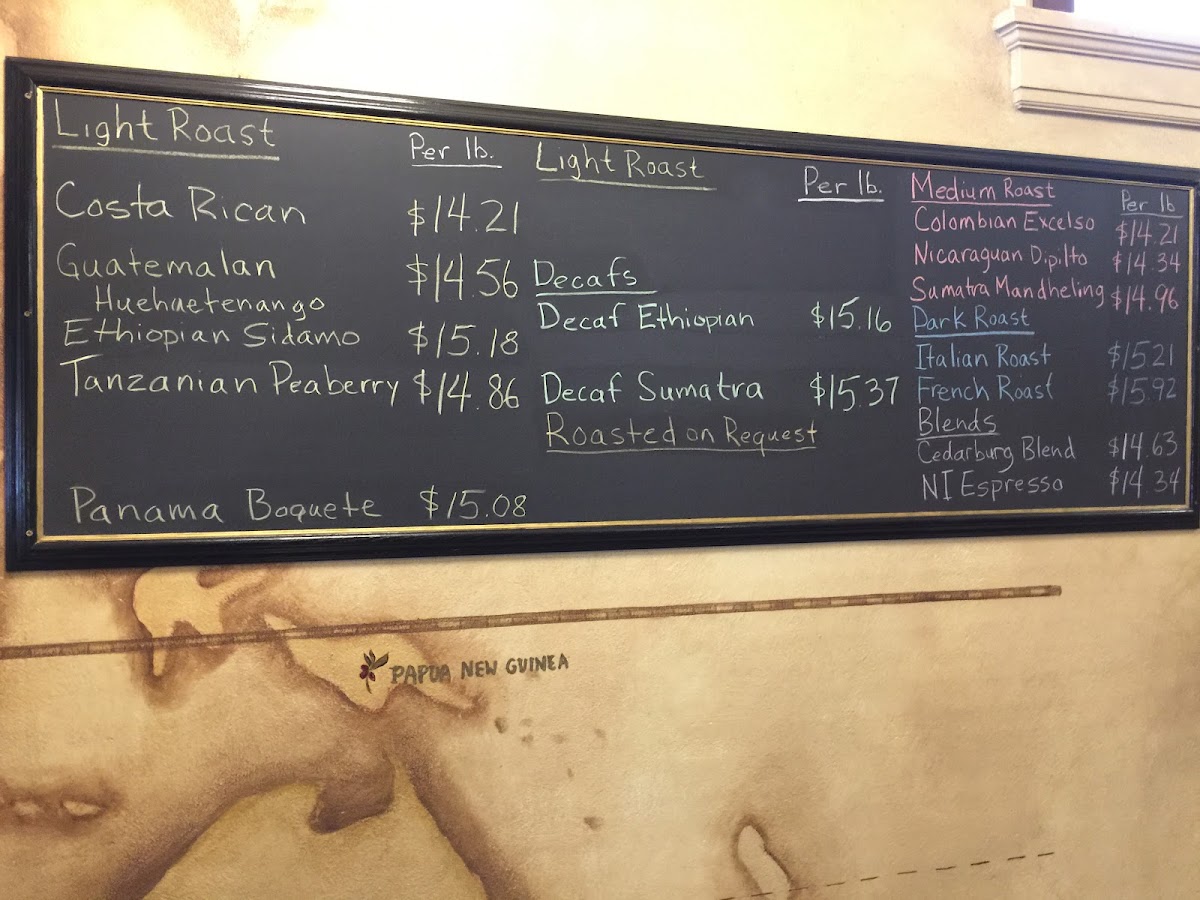 Light Roast Per lb.
Costa Rican $14.21
Guatemalan $14.56
Huehuetenango
Ethiopian Sidamo $15.18
Tanzanian Peaberry $14.86
Panama Boquete $15.08
Light Roast Per lb.
Decafs
Decaf Ethiopian $15.16
Decaf Sumatra $15.37
Roasted on Request
Medium Roast Per lb
Colombian Excelso $14.21
Nicaraguan Dipilto $14.34
Sumatra Mandheling $14.96
Dark Roast
Italian Roast $15.21
French Roast $15.92
Blends
Cedarburg Blend $14.63
NI Espresso $14.34
PAPUA NEW GUINEA